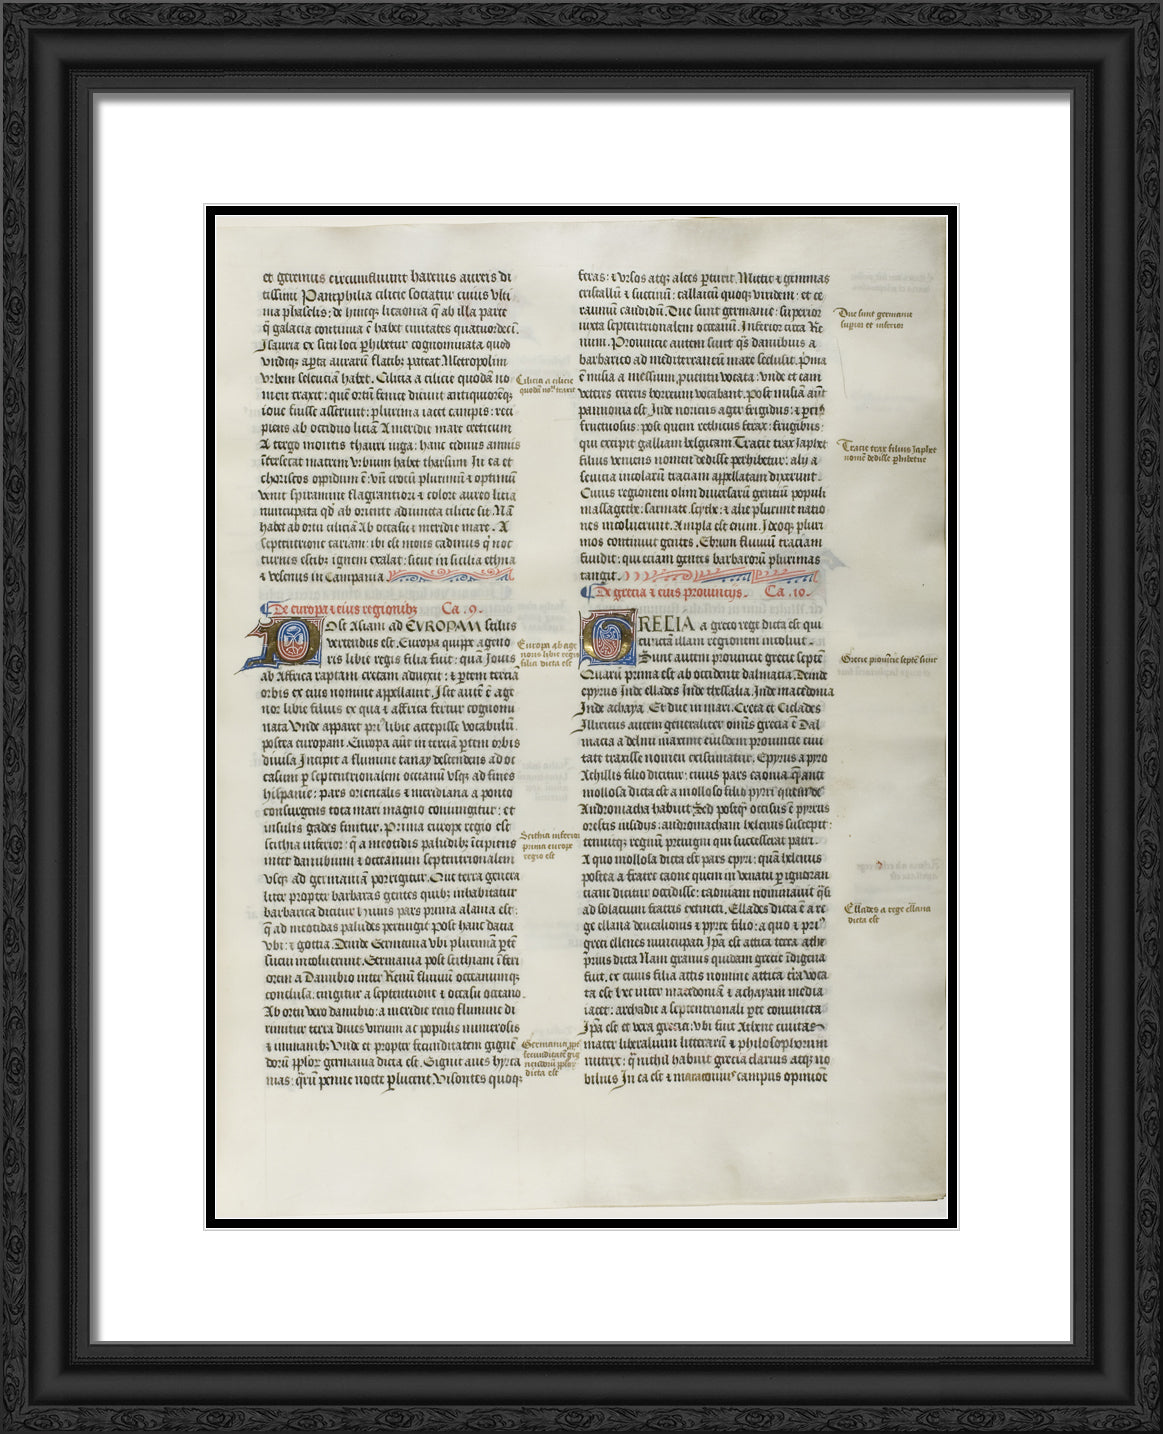 et geminus circumfluunt harenis aureis di
tissimi Pamphilia cilicie sociatur cuius
nia phaselis: de hincq licaonia q̄ ab illa parte
q̄ galacia continua ē habet civitates quatuordeci.
Isauria ex situ loci p̄hibetur cognominata quod
undiq; apta aurarū flatibꝫ pateat Metropolim
Urbem seleuciā habet. Cilicia a cilice quodā no
men traxit: quē ortū fenice dicunt antiquioreq;
ioue fuisse asserunt: plurima iacet campis: reci
piens ab occiduo liciā A meridie mare
A tergo montis thauri iuga: hanc cidnus amnis
īterfecat matrem urbium habet tharsum In ea et
choriscos oppidum ē: vn̄ crocū plurimū et optimū
venit spiramine flagrantiori et colore aureo licia
nuncupata qd̄ ab oriente adiuncta cilicie sit. Nā
habet ab ortu ciliciā Ab occasu et meridie mare. A
septentrione cariam: ibi est mons q̄ noc
turnis estibꝫ ignem exalat: sicut in sicilia ethna
et vesevus in Campania.
De europa et eius regionibꝫ Ca .9.
Post Asiam ad EVROPAM stilus
vertendus est. Europa quippe ageno
ris libie regis filia fuit: quā Jouis
ab Affrica raptam cretam aduexit: et p̄tem terciā
orbis ex eius nomine appellauit. Iste autē ē age
nor libie filius ex qua et affrica fertur cognomi
nata Unde apparet pri' libie accepisse vocabulū.
postea europam. Europa aūt in terciā p̄tem orbis
diuisa Incipit a flumine tanay descendens ad oc
casum p septentrionalem occeanū usq; ad fines
hispanie: pars orientalis et meridiana a ponto
consurgens tota mari magno coniungitur: et
insulis gades finitur. Prima europe regio est
scithia inferior: q̄ a meotidis paludibꝫ īcipiens
inter danubium et occeanum septentrionalem
usq; ad germaniā porrigitur. Que terra genera
liter propter barbaras gentes quibꝫ inhabitatur
barbarica dicitur huius pars prima alania est:
q̄ ad meotidas paludes pertingit post hanc dacia
vbi: et gottia Deinde Germania vbi plurimā p̄tē
sueui incoluerunt. Germania post scithiam īferi
orem a Danubio inter Renū fluuiū occeanumq;
conclusa. cingitur a septentrione et occasu occeano.
Ab ortu vero danubio: a meridie reno flumine di
rimitur terra diues virum ac populis numerosis
et immanibꝫ Unde et propter fecunditatem gignē
dorū pplor̄ germania dicta est. Gignit aues hyrca
nias: qr̄ū penne nocte p̄lucent. Visontes quoq;
Cilicia a cilicie
quodā noīe traxit
Europa ab age
noris libie regis
filia dicta est
Scithia inferior
prima europe
regio est
Germania ppt
fecunditatē gig
nendorū pplor̄
dicta est
feras: et ursos atq; alces p̄turit. Mittit et gemmas
cristallū et succinū: callaicū quoq; viridem: et ce
raunium candidum. Due sunt germanie: superior
iuxta septentrionalem occeanū. Inferior circa Re
num. Prouincie autem sunt q̄s danubius a
barbarico ad mediterraneū mare secludit. p̄ma
ē misia a messium puentu vocata: unde et eam
veteres cereris horreum vocabant. Post misiā aūt
pannonia est Inde noricus ager frigidus: et
fructuosus: post quem rethicus ferax: frugibus:
qui excipit galliam belgicam Tracie trax Japhet
filius veniens nomen dedisse perhibetur: alij a
seuicia incolarū traciam appellatam dixerunt.
Cuius regionem olim diuersarū gentiū populi
massagethe: sarmate. scythe: et alie plurime natio
nes incoluerunt. Ampla est enim. Idcoq; pluri
mos continuit gentes. Ebrum fluuiū traciam
fundit: qui eciam gentes barbarorū plurimas
tangit.
De grecia et eius prouincijs. Ca .10.
GRECIA a greco rege dicta est qui
cunctā illam regionem incoluit.
Sunt autem prouincie grecie septē
Quarū prima est ab occidente dalmatia. Deinde
epyrus Inde ellades Inde thessalia. Inde macedonia
Inde achaya. Et due in mari. Creta et Ciclades
Illiricus autem generaliter omīs grecia ē Dal
macia a delmi maxime eiusdem prouincie ciui
tate traxisse nomen existimatur. Epyrus a pyro
Achillis filio dicitur: cuius pars caonia q̄ ante
mollosa dicta est a molloso filio pyri quem de
Andromacha habuit Sed postq̄ occisus ē pyrrus
orestis insidijs: andromacham helenus suscepit:
tenuitq; regnū priuigni qui successerat patri.
A quo mollosa dicta est pars epyri: quā helenus
postea a fratre caone quem in venatu p ignoran
ciam dicitur occidisse: caoniam nominauit q̄si
ad solacium fratris extincti. Ellades dicta ē a re
ge ellana deucalionis et pyrre filio: a quo et pri'
greci ellenes nuncupati Ip̄a est attica terra athe
p̄rius dicta Nam granus quidam grecie īdigena
fuit. ex cuius filia attis nomine attica tr̄a voca
ta est Hec inter macedoniā et achayam media
iacet: archadie a septentrionali p̄te coniuncta
Ip̄a est et vera grecia: vbi fuit Athene ciuitas
mater liberalium litterarū et philosophorum
nutrix: q̄ nichil habuit grecia clarius atq; no
bilius In ea est et campus opinione
Due sunt germanie
supior et inferior
Tracie trax filius Japhet
nomē dedisse p̄hibetur
Grecie prouīcie septē sunt
Ellades a rege ellana
dicta est